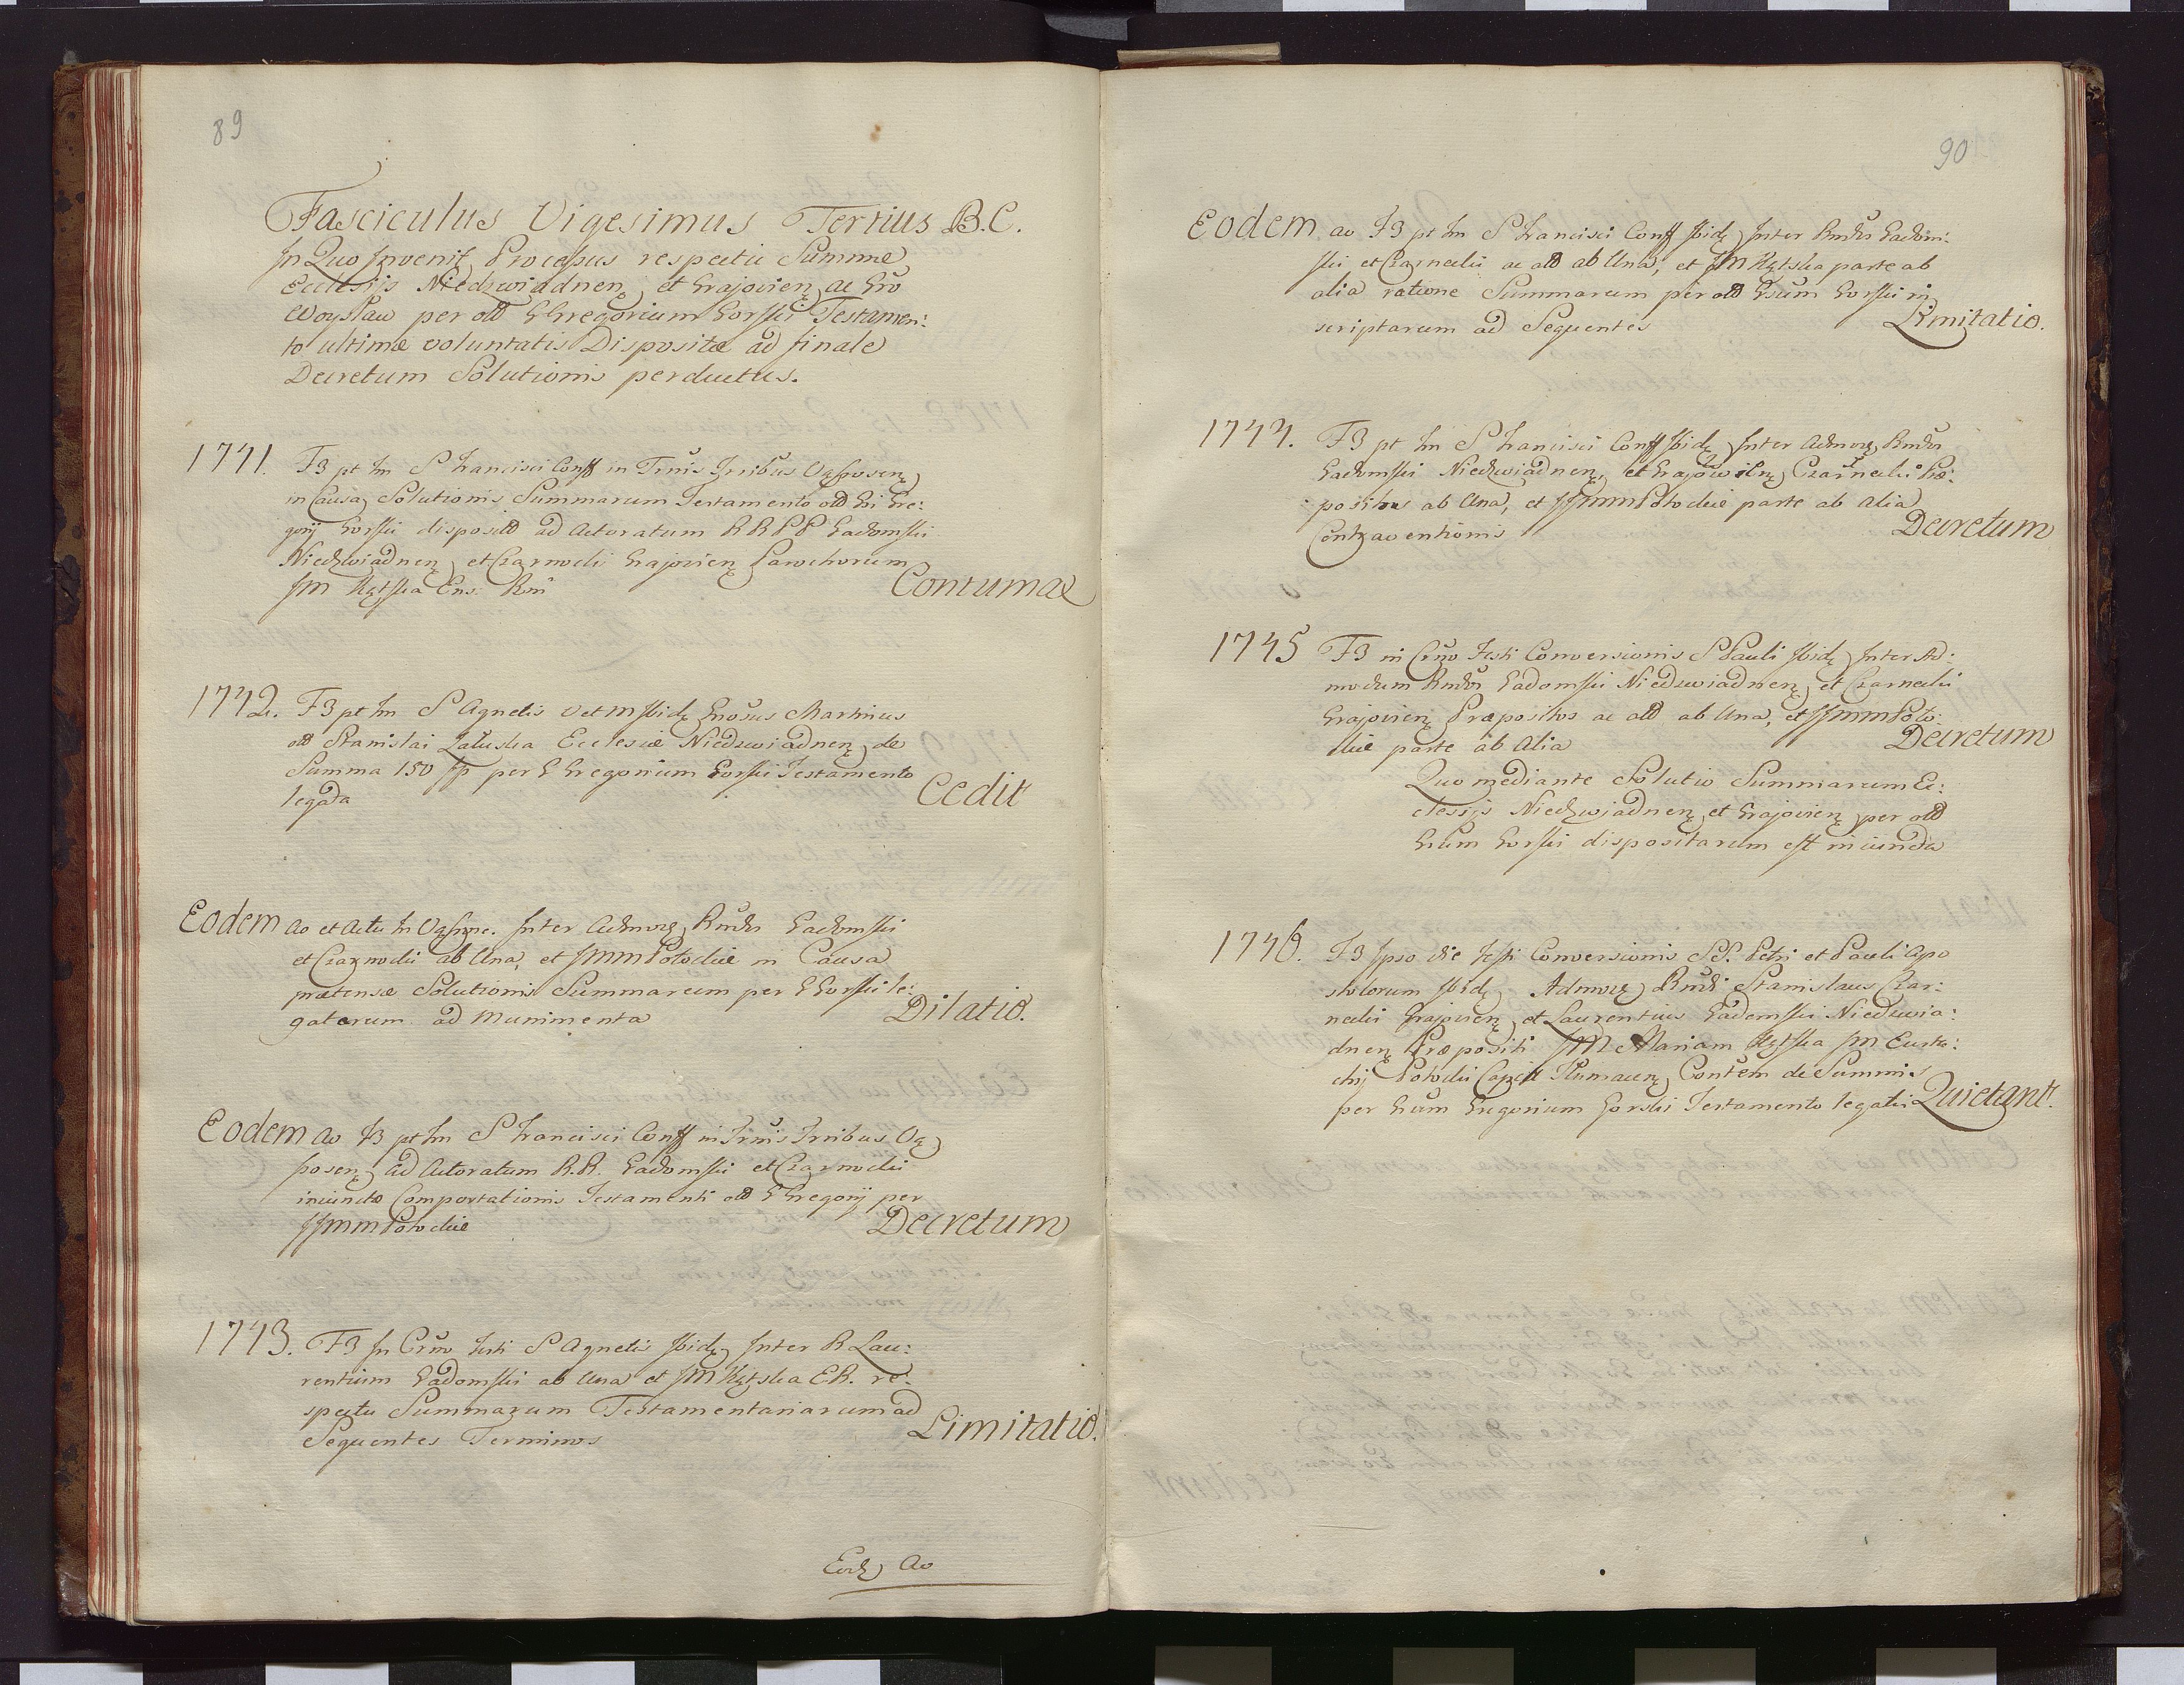 89
Fasciculus Vigesimus Tertius B.C.
In Quo Invenit Processus respectu Summe
Ecclesijs Niedzwiadnen et Grajovien ac Gro
Woysław per olld G Gregorium Gorski Testamen:
to ultimæ voluntatis Dispositæ ad finale
Decretum Solutionis perductus.
1741. F3 pt Im S Francisci Conff in Trnis Trribus Vąssosen
in Causa Solutionis Summarum Testamento olld Gi Gre:
gorij Gorski disposit ad Actoratum RRPP Gadomski
Niedzwiadnen et Czarnocki Grajovien Parochorum
JM Kątska Ens: Rni Contumax
1742. F3 pt Im S Agnetis V et M Ibid Gnosus Martinus
olld Stanislai Załuska Ecclesiæ Niedzwiadnen de
Summa 150 fp per G Gregorium Gorski Testamento
legata Cedit
Eodem Ao et Actu In Inter Admorg Rndos Gadomski
et Czarnocki ab Una, et JMM Potockie in Causa
prætensæ Solutionis Summarum per G Gorski le:
gatarum ad Munimenta Dilatio.
Eodem Ao F3 pt Im S Francisci Conff in Trnis Trribus Vą
ssosen ad Actoratum R.R. Gadomski et Czarnocki
iniunctæ Comportationis Testamenti olld G Gregorij per
JJMM Potockie Decretum
1743. F3 In Crno Festi S Agnetis Ibid Inter R Lau:
rentium Gadomski ab Una et JM Kątska ER. re:
spectu Summarum Testamentariarum ad
Sequentes Terminos Limitatio.
Eod Ao
90
Eodem ao F3 pt Im S Francisci Conff Ibid Inter Rndos Gadom:
ski et Czarnecki ac alld ab Una, et JM Kątska parte ab
alia ratione Summarum per olld Gsum Gorski in
scriptarum ad Sequentes Limitatio.
1744. F3 pt Im S Francisci Conff Ibid Inter Admorg Rndos
Gadomski Niedzwiadnen, et Grajovien Czarnecki Præ:
positos ab Una, et JJMM Potockie parte ab Alia
Contraventionis Decretum
1745 F3 in Crno Festi Conversionis S Pauli Ibid Inter Ad:
modum Rndos Gadomski Niedzwiadnen et Czarnecki
Grajovien Præpositos ac alld ab Una, et JJMM Poto:
ckie parte ab Alia Decretum
Quo mediante Solutio Summarum Ec:
clesijs Niedzwiadnen et Grajovien per olld
Gsum Gorski dispositarum est iniuncta
1746. F3 Ipso die Festi Conversionis SS. Petri et Pauli Apo
stolorum Ibid Admorg Rndi Stanislaus Czar:
necki Grajovien et Laurentius Gadomski Niedzwia:
dnen Præpositi JM Mariam Kątska JM Eusta:
chij Potocki Capit Tlumacen Contem de Summis
per Gsum Gregorium Gorski Testamento legatis Quietant.